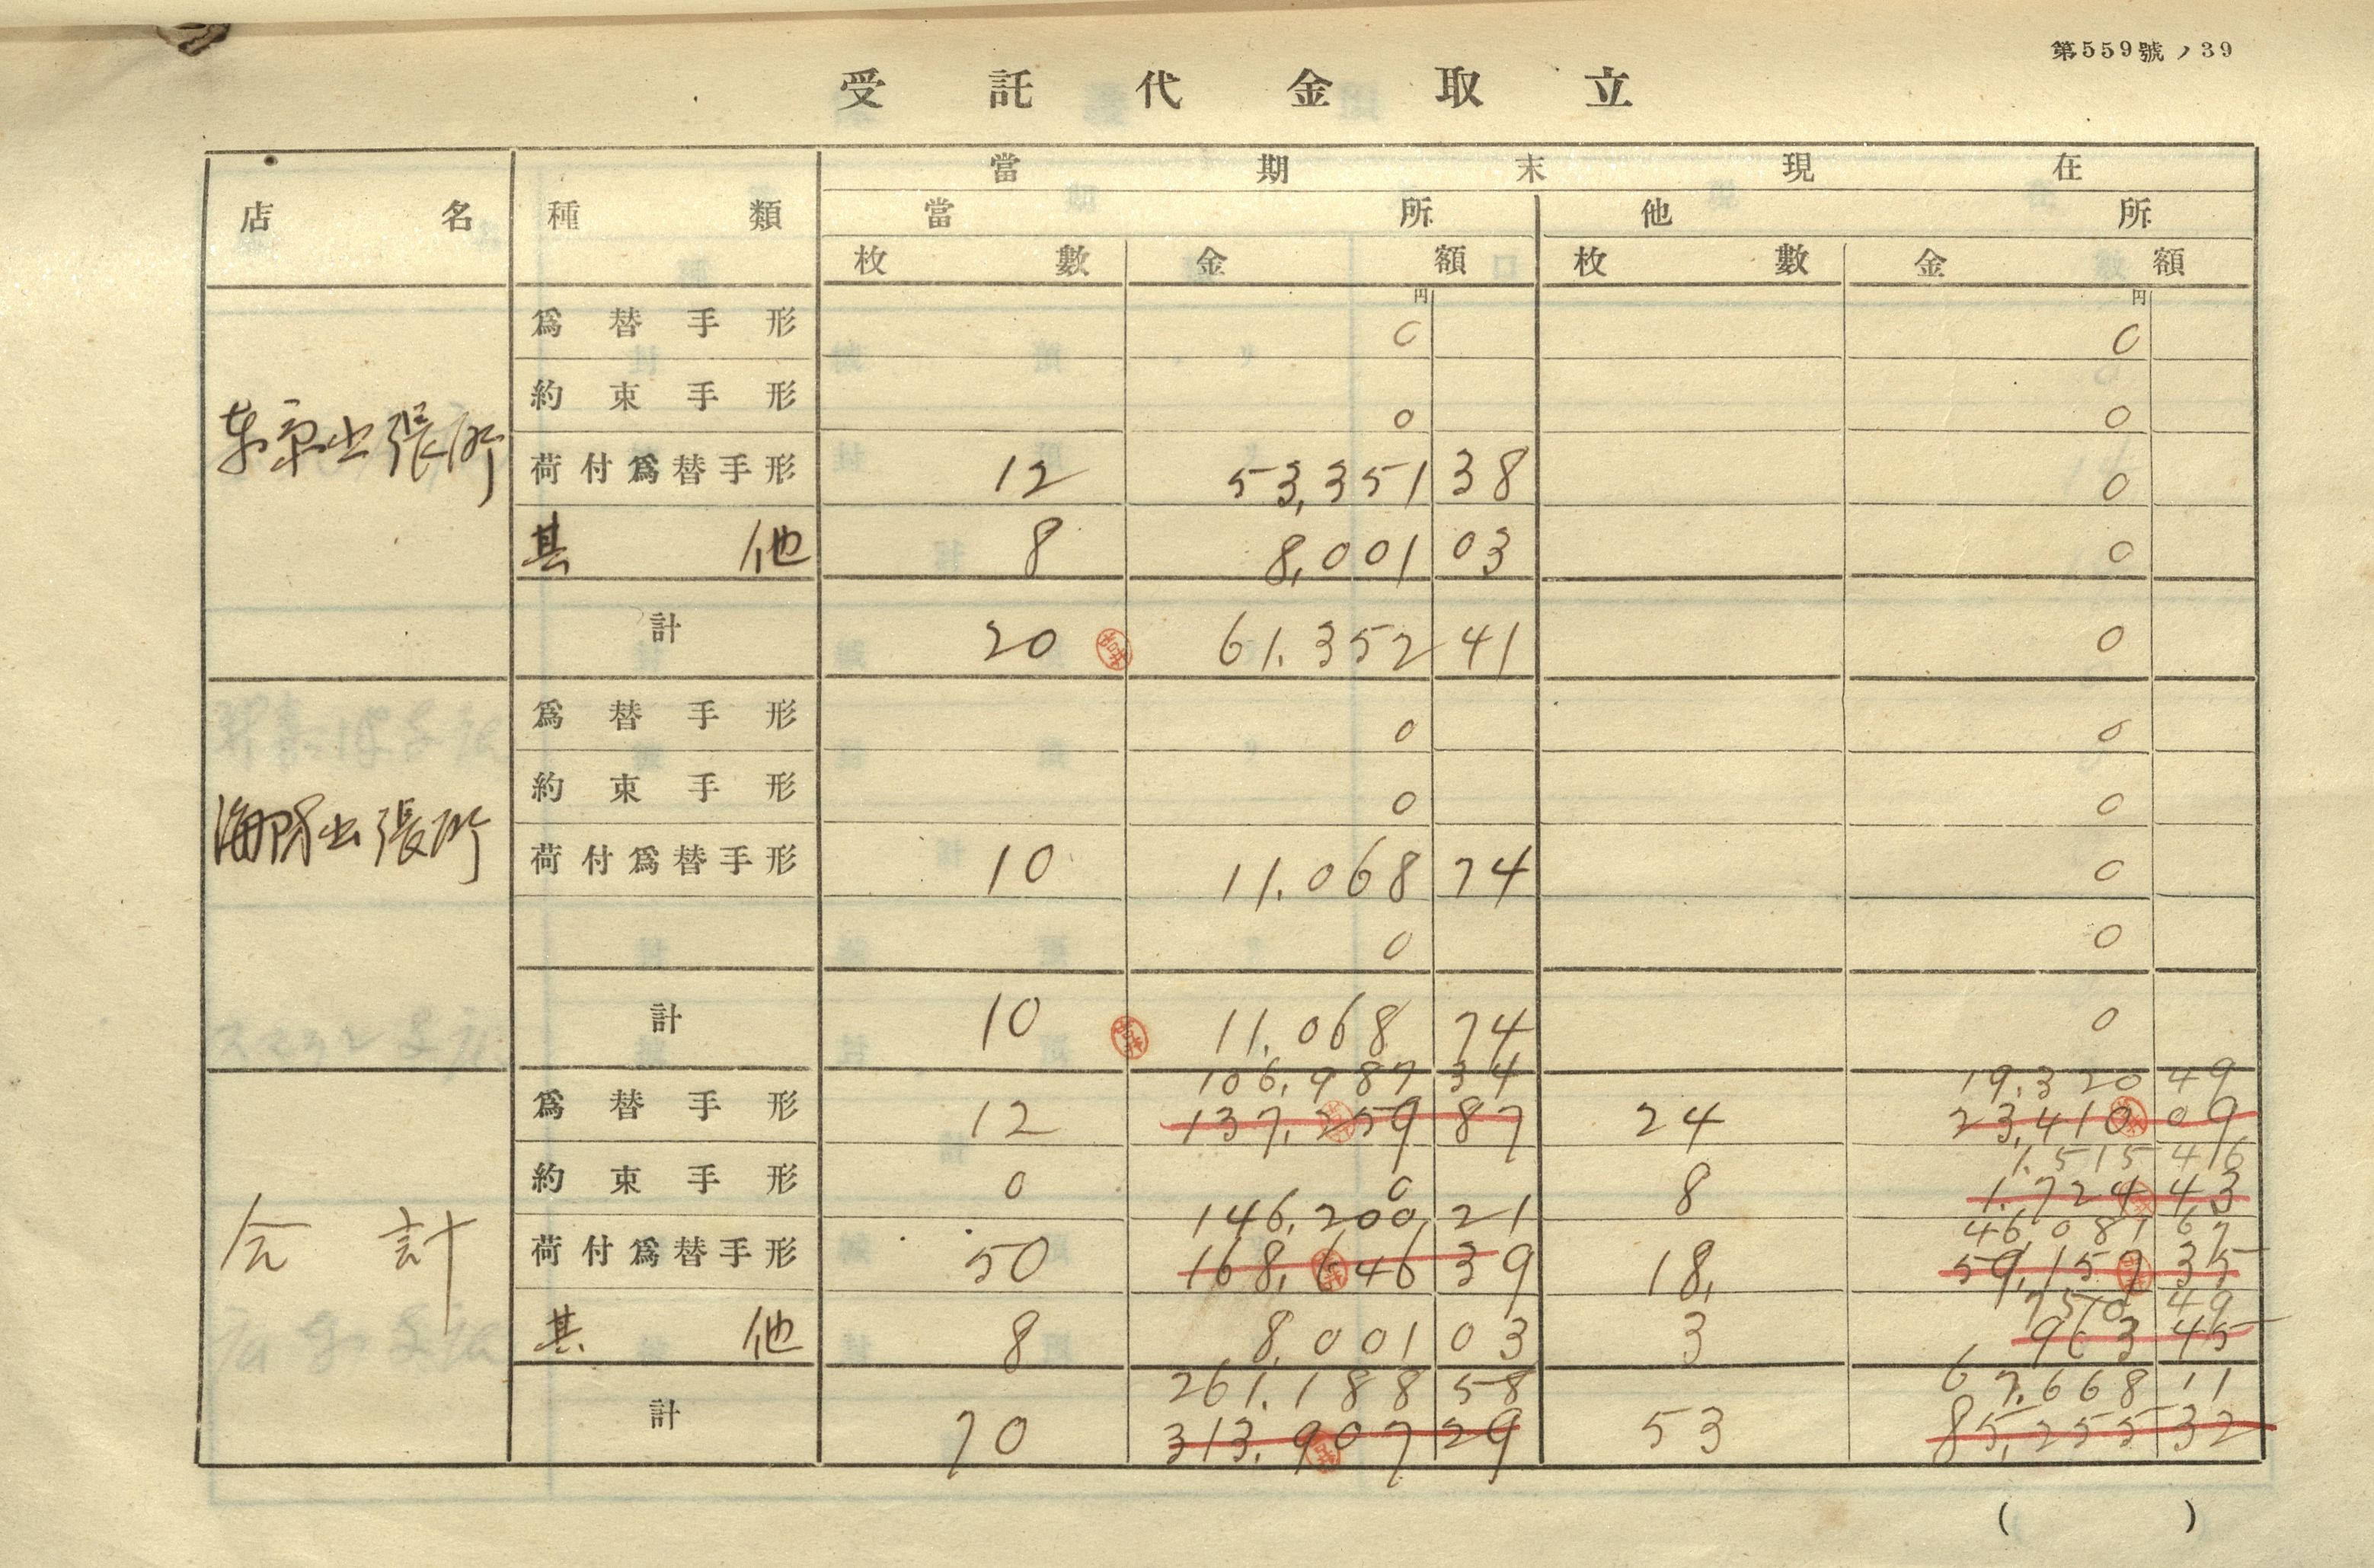 第559號ノ39
受託代金取立
當期末現在
店名 種類 當所 他所
枚數 金額 枚數 金額
円 円
爲替手形 0 0
約束手形 0 0
東京出張所
荷付爲替手形 12 53,351 38 0
其他 8 8,001 03 0
計 20 61,352 41 0
爲替手形 0 0
約束手形 0 0
海防出張所
荷付爲替手形 10 11,068 74 0
0 0
計 10 11,068 74 0
106,987 34 19,320 49
爲替手形 12 137,259 87 24 23,410 09
1,515 46
約束手形 0 0 8 1,724 43
合計
146,200 21 46,081 67
荷付爲替手形 50 168,646 39 18 59,157 35
750 49
其他 8 8,001 03 3 963 45
261,188 58 67,668 11
計 70 313,907 29 53 85,255 32
( )